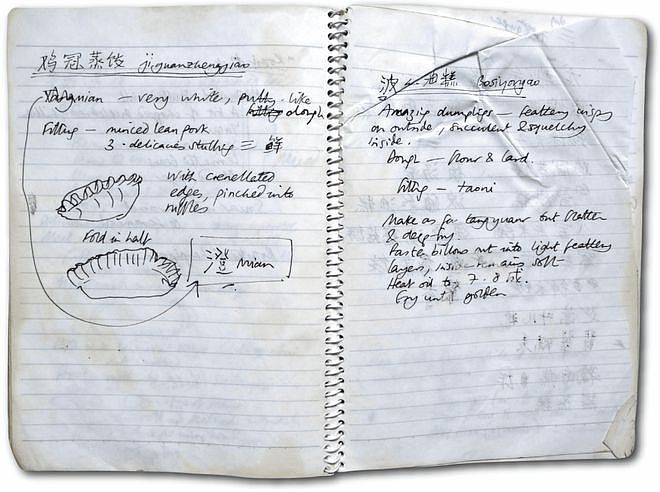 鸡冠蒸饺 jiguanzhengjiao
Tangmian — very white, putty-like
dough
Filling — minced lean pork
3-delicacies stuffing 三鲜
With crenellated
edges, pinched into
ruffles
Fold in half
mian
波丝油糕 bosiyougao
Amazing dumplings — feathery crispy
on outside, succulent & squelchy
inside.
Dough — flour & lard.
Filling — taoni
Make as for tangyuan but flatten
& deep-fry.
Paster billows out into light feathery
layers, inside remains soft
Heat oil to 7-8
Fry until golden